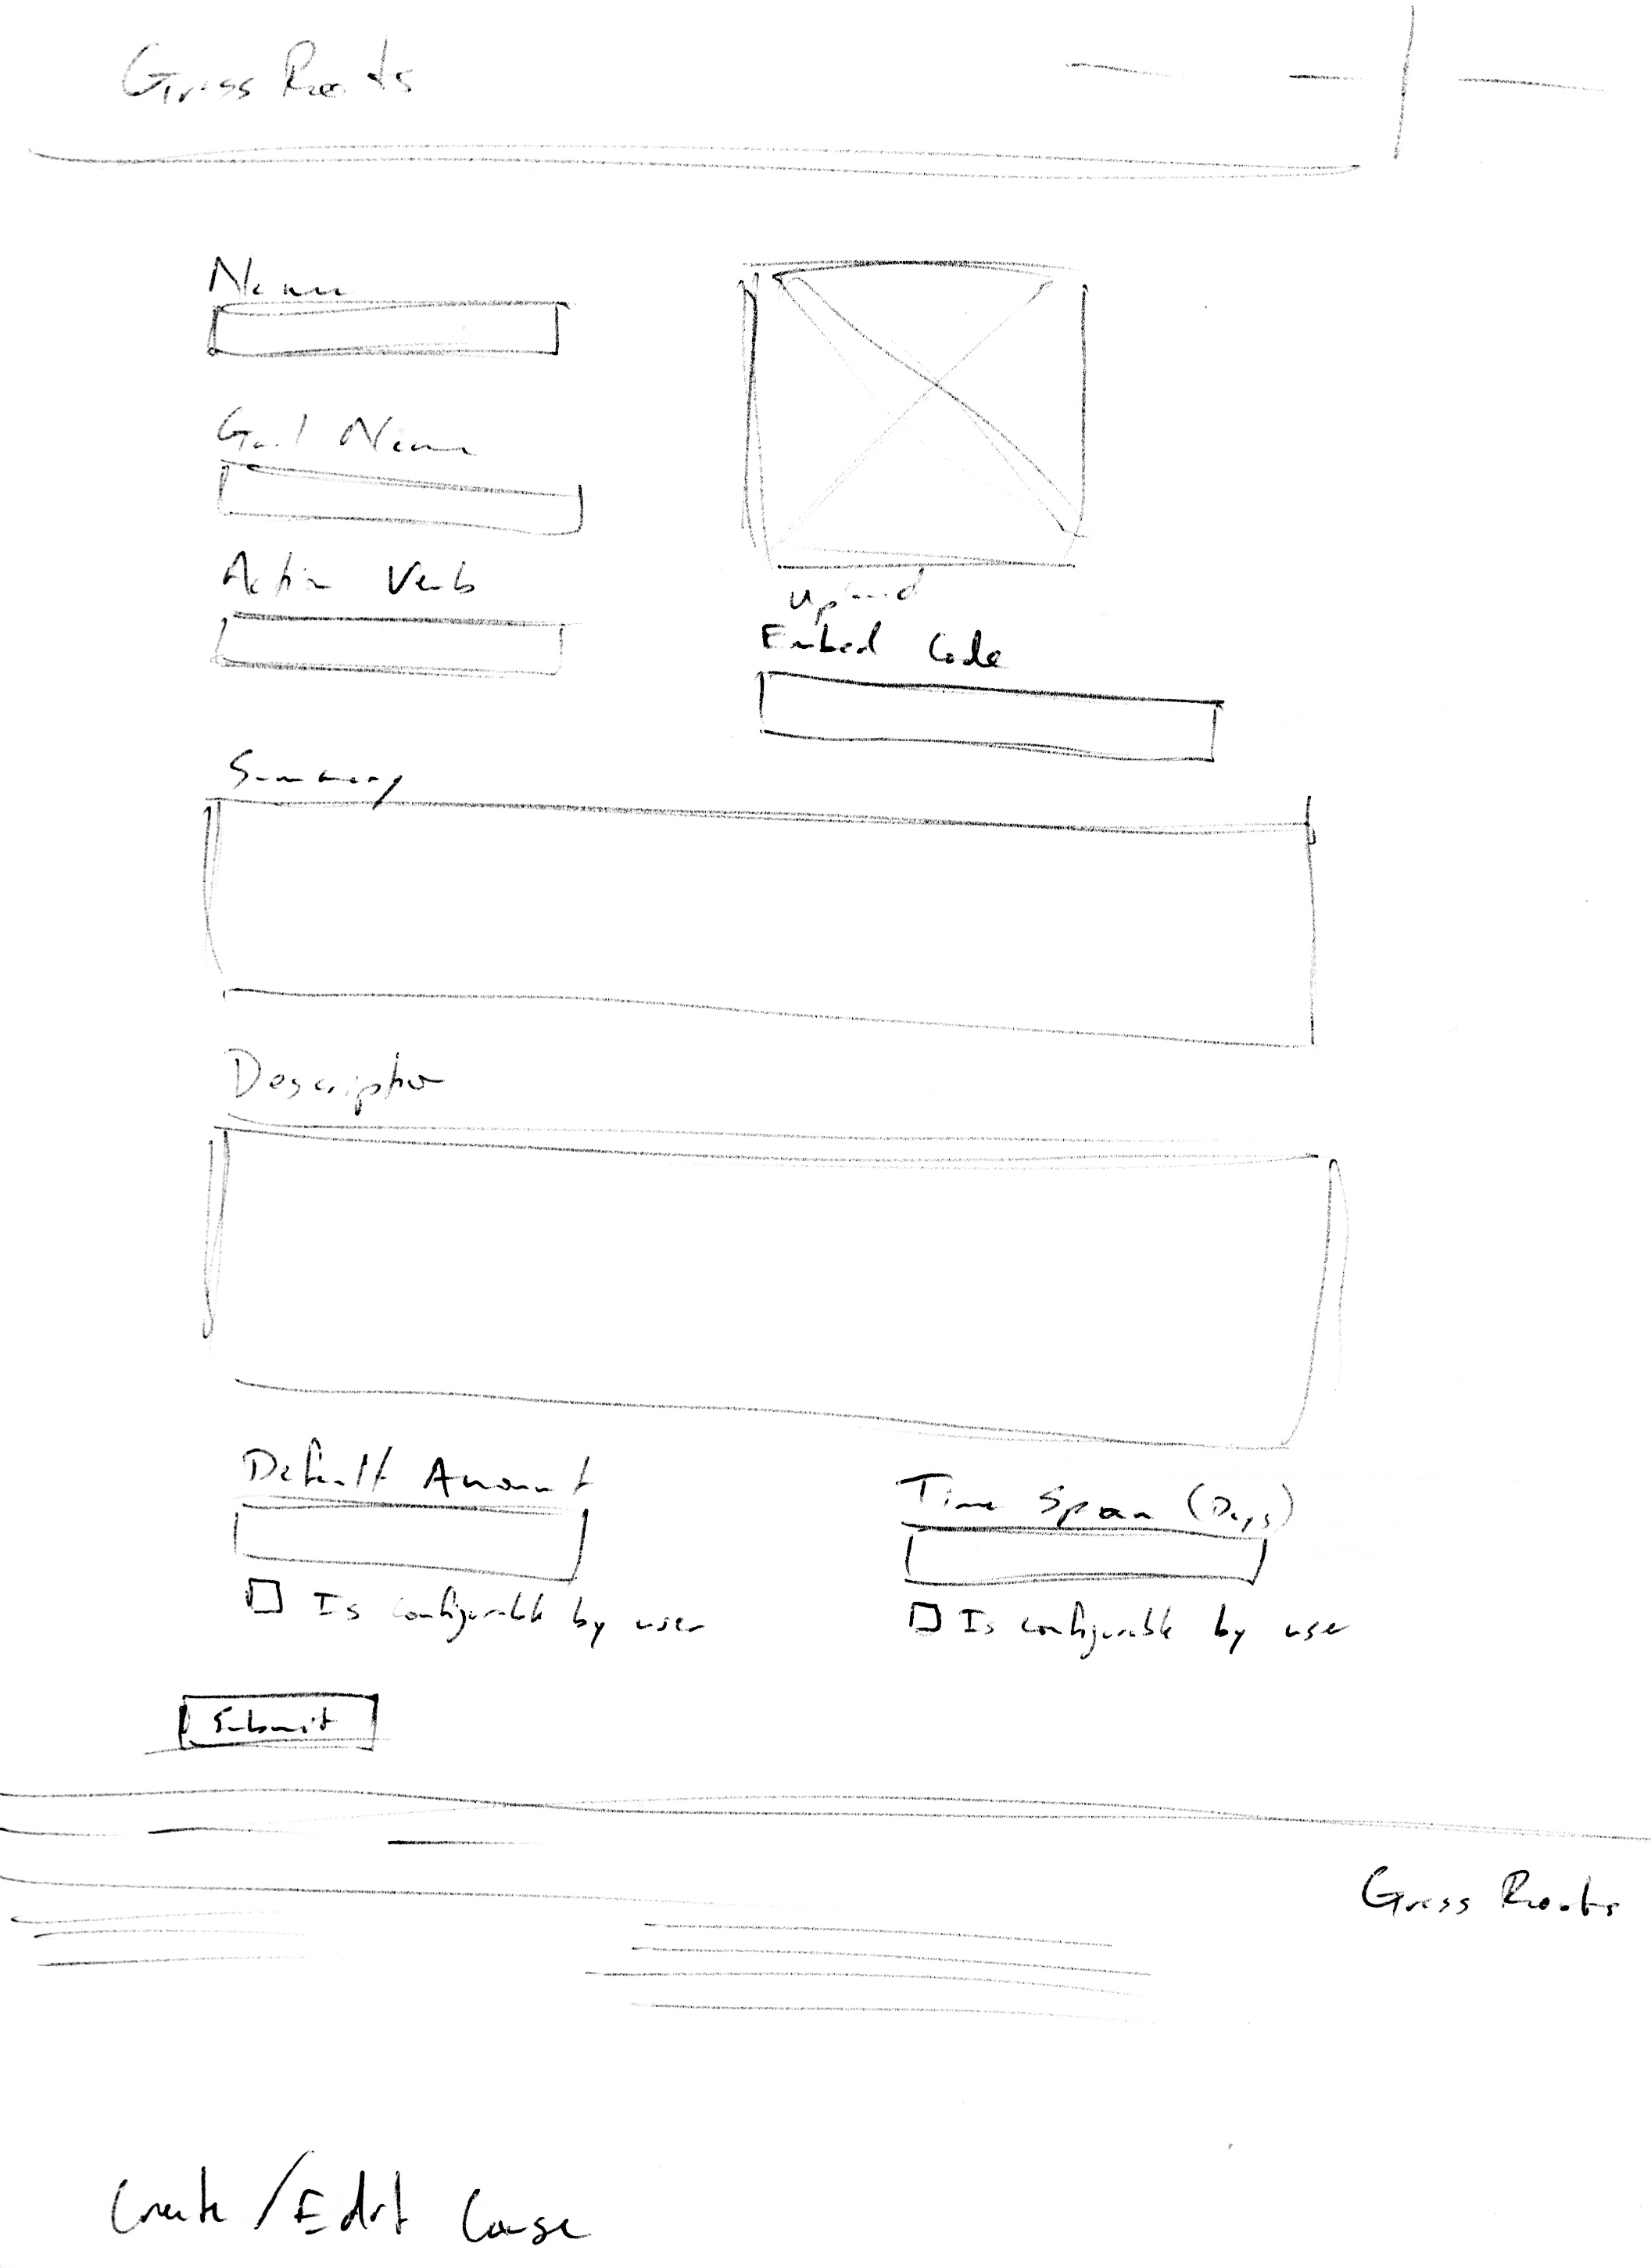 Grass Roots
Name
Goal Name
Action Verb
Upload
Embed Code
Summary
Description
Default Amount
Time Span (Days)
Is configurable by user
Is configurable by user
Submit
Grass Roots
Create/Edit Cause